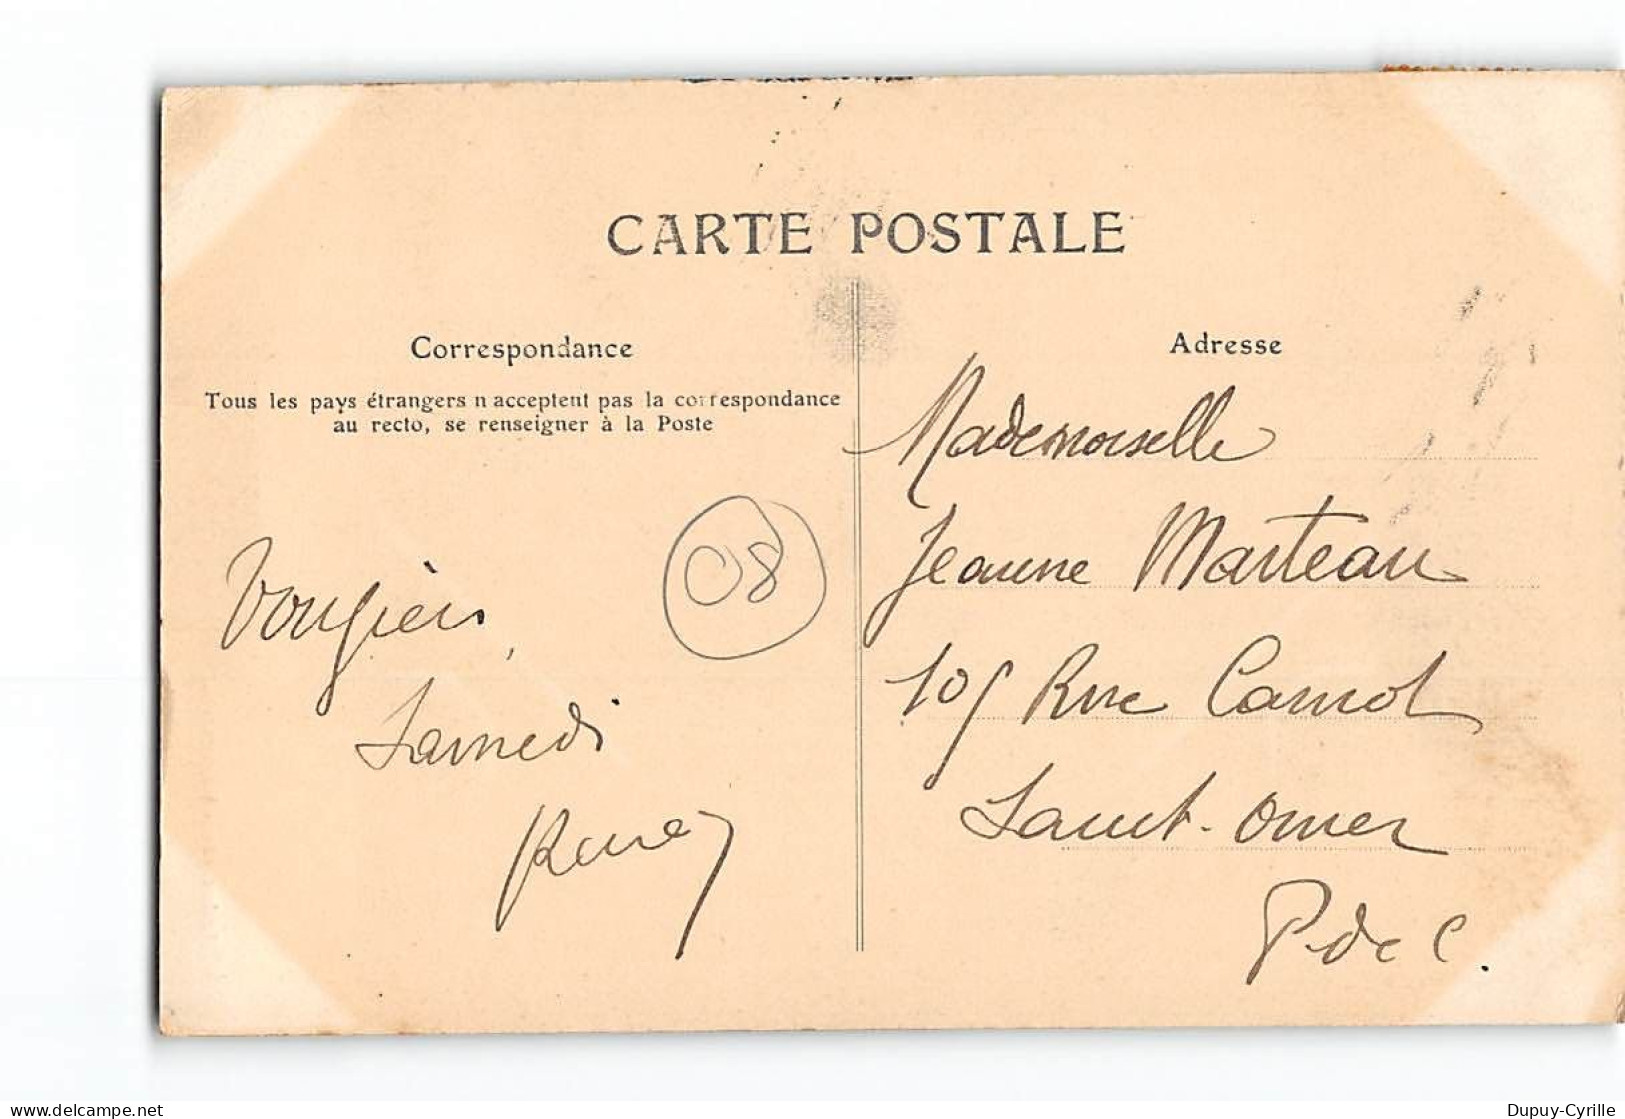 CARTE POSTALE
Correspondance
Tous les pays étrangers n acceptent pas la correspondance
au recto, se renseigner à la Poste
08
Vouziers,
Samedi
René
Adresse
Mademoiselle
Jeanne Marteau
105 Rue Carnot
Saint-Omer
P de C.
delcampe.net
Dupuy-Cyrille